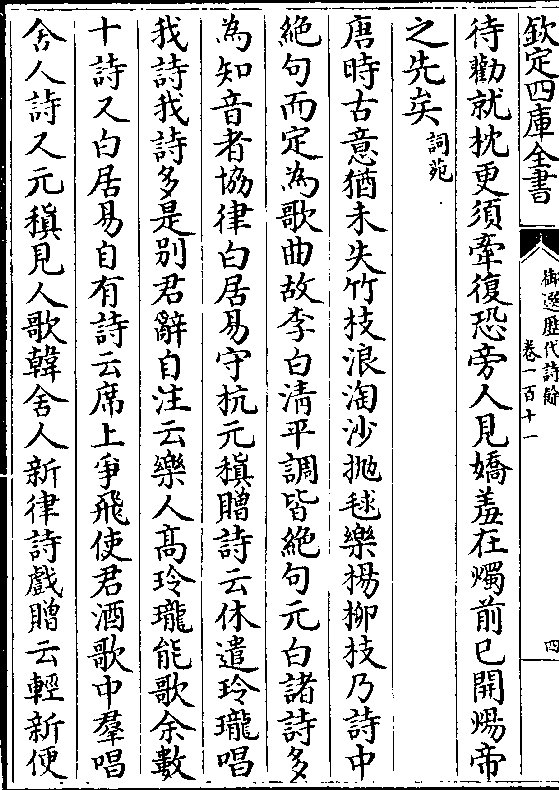 欽定四庫全書
御選歴代詩餘
卷一百十一
四
待勸就枕更須牽復恐旁人見嬌羞在燭前已開煬帝
之先矣詞苑
唐時古意猶未失竹枝浪淘沙抛毬樂楊柳枝乃詩中
絶句而定為歌曲故李白清平調皆絶句元白諸詩多
為知音者協律白居易守杭元稹贈詩云休遣玲瓏唱
我詩我詩多是别君辭自注云樂人髙玲瓏能歌余數
十詩又白居易自有詩云席上爭飛使君酒歌中羣唱
舍人詩又元稹見人歌韓舍人新律詩戲贈云輕新便